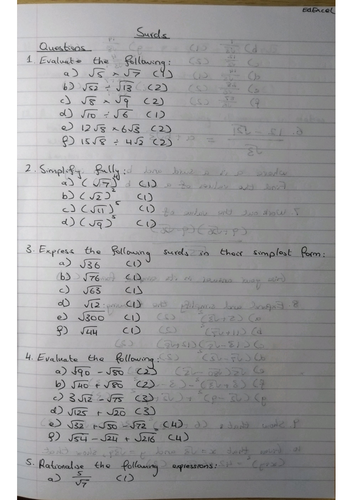 EdExcel
Surds
Questions
1. Evaluate the following:
a) √5 × √7 (1)
b) √52 ÷ √13 (2)
c) √8 × √9 (2)
d) √10 ÷ √6 (1)
e) 12√8 × 6√3 (2)
f) 15√8 ÷ 4√2 (2)
2. Simplify fully:
a) (√7)⁴ (1)
b) (√2)⁵ (1)
c) (√11)⁵ (1)
d) (√9)⁵ (1)
3. Express the following surds in their simplest form:
a) √36 (1)
b) √76 (1)
c) √63 (1)
d) √12 (1)
e) √300 (1)
f) √44 (1)
4. Evaluate the following:
a) √90 - √50 (2)
b) √40 + √80 (2)
c) 3√12 - √75 (3)
d) √125 + √20 (3)
e) √32 + √50 - √72 (4)
f) √54 - √24 + √216 (4)
5. Rationalise the following expressions:
a) 5/√7 (1)